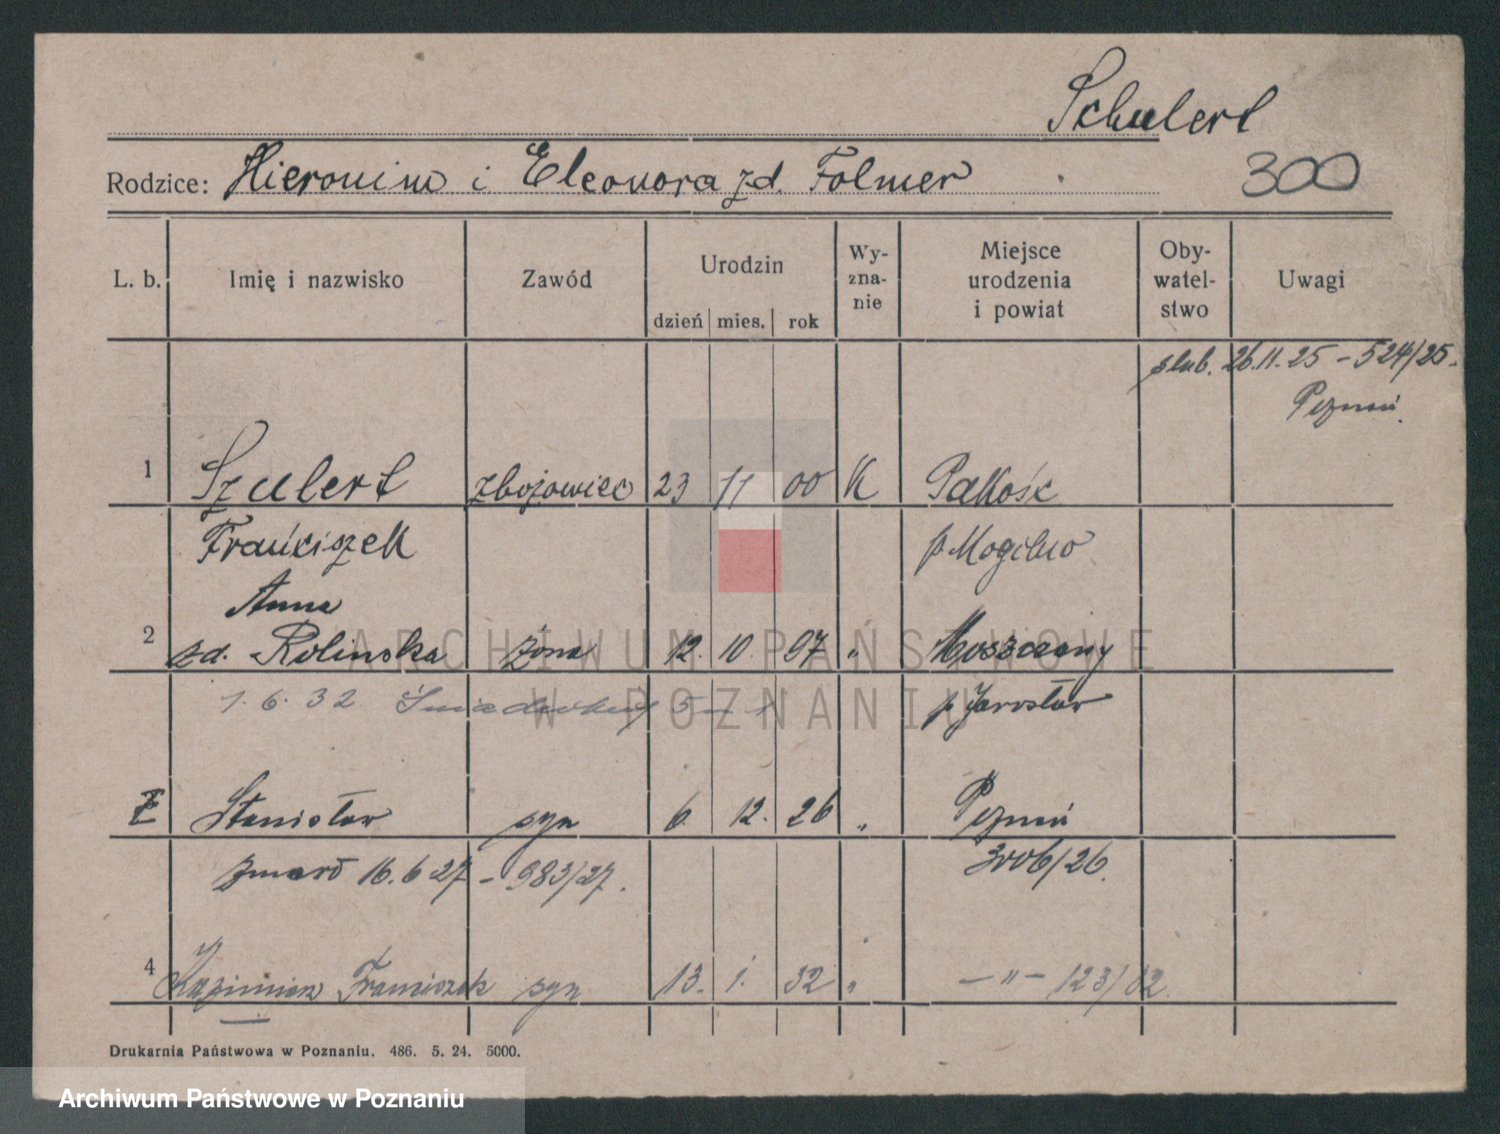 Schulert
Rodzice: Hieronim i Eleonora zd. Folmer
300
L. b. Imię i nazwisko Zawód Urodzin dzień mies. rok Wy-zna-nie Miejsce urodzenia i powiat Oby-watel-stwo Uwagi
ślub. 26.11.25 – 524/25.
Poznań.
1 Szulert zbojowiec 23 11 00 K Pakość
Franciszek p Mogilno
Anna
2 zd. Rolinska żona 12. 10. 97 „ Moszczany
1.6.32 Śniadeckich 5 p Jarosław
Stanisław syn 6. 12. 26 „ Poznań
zmarł 16.6 27 – 983/27. 3006/26.
4 Kazimierz Franciszek syn 13. 1. 32 „ – „ – 123/32.
Drukarnia Państwowa w Poznaniu. 486. 5. 24. 5000.
ARCHIWUM PAŃSTWOWE
W POZNANIU
Archiwum Państwowe w Poznaniu